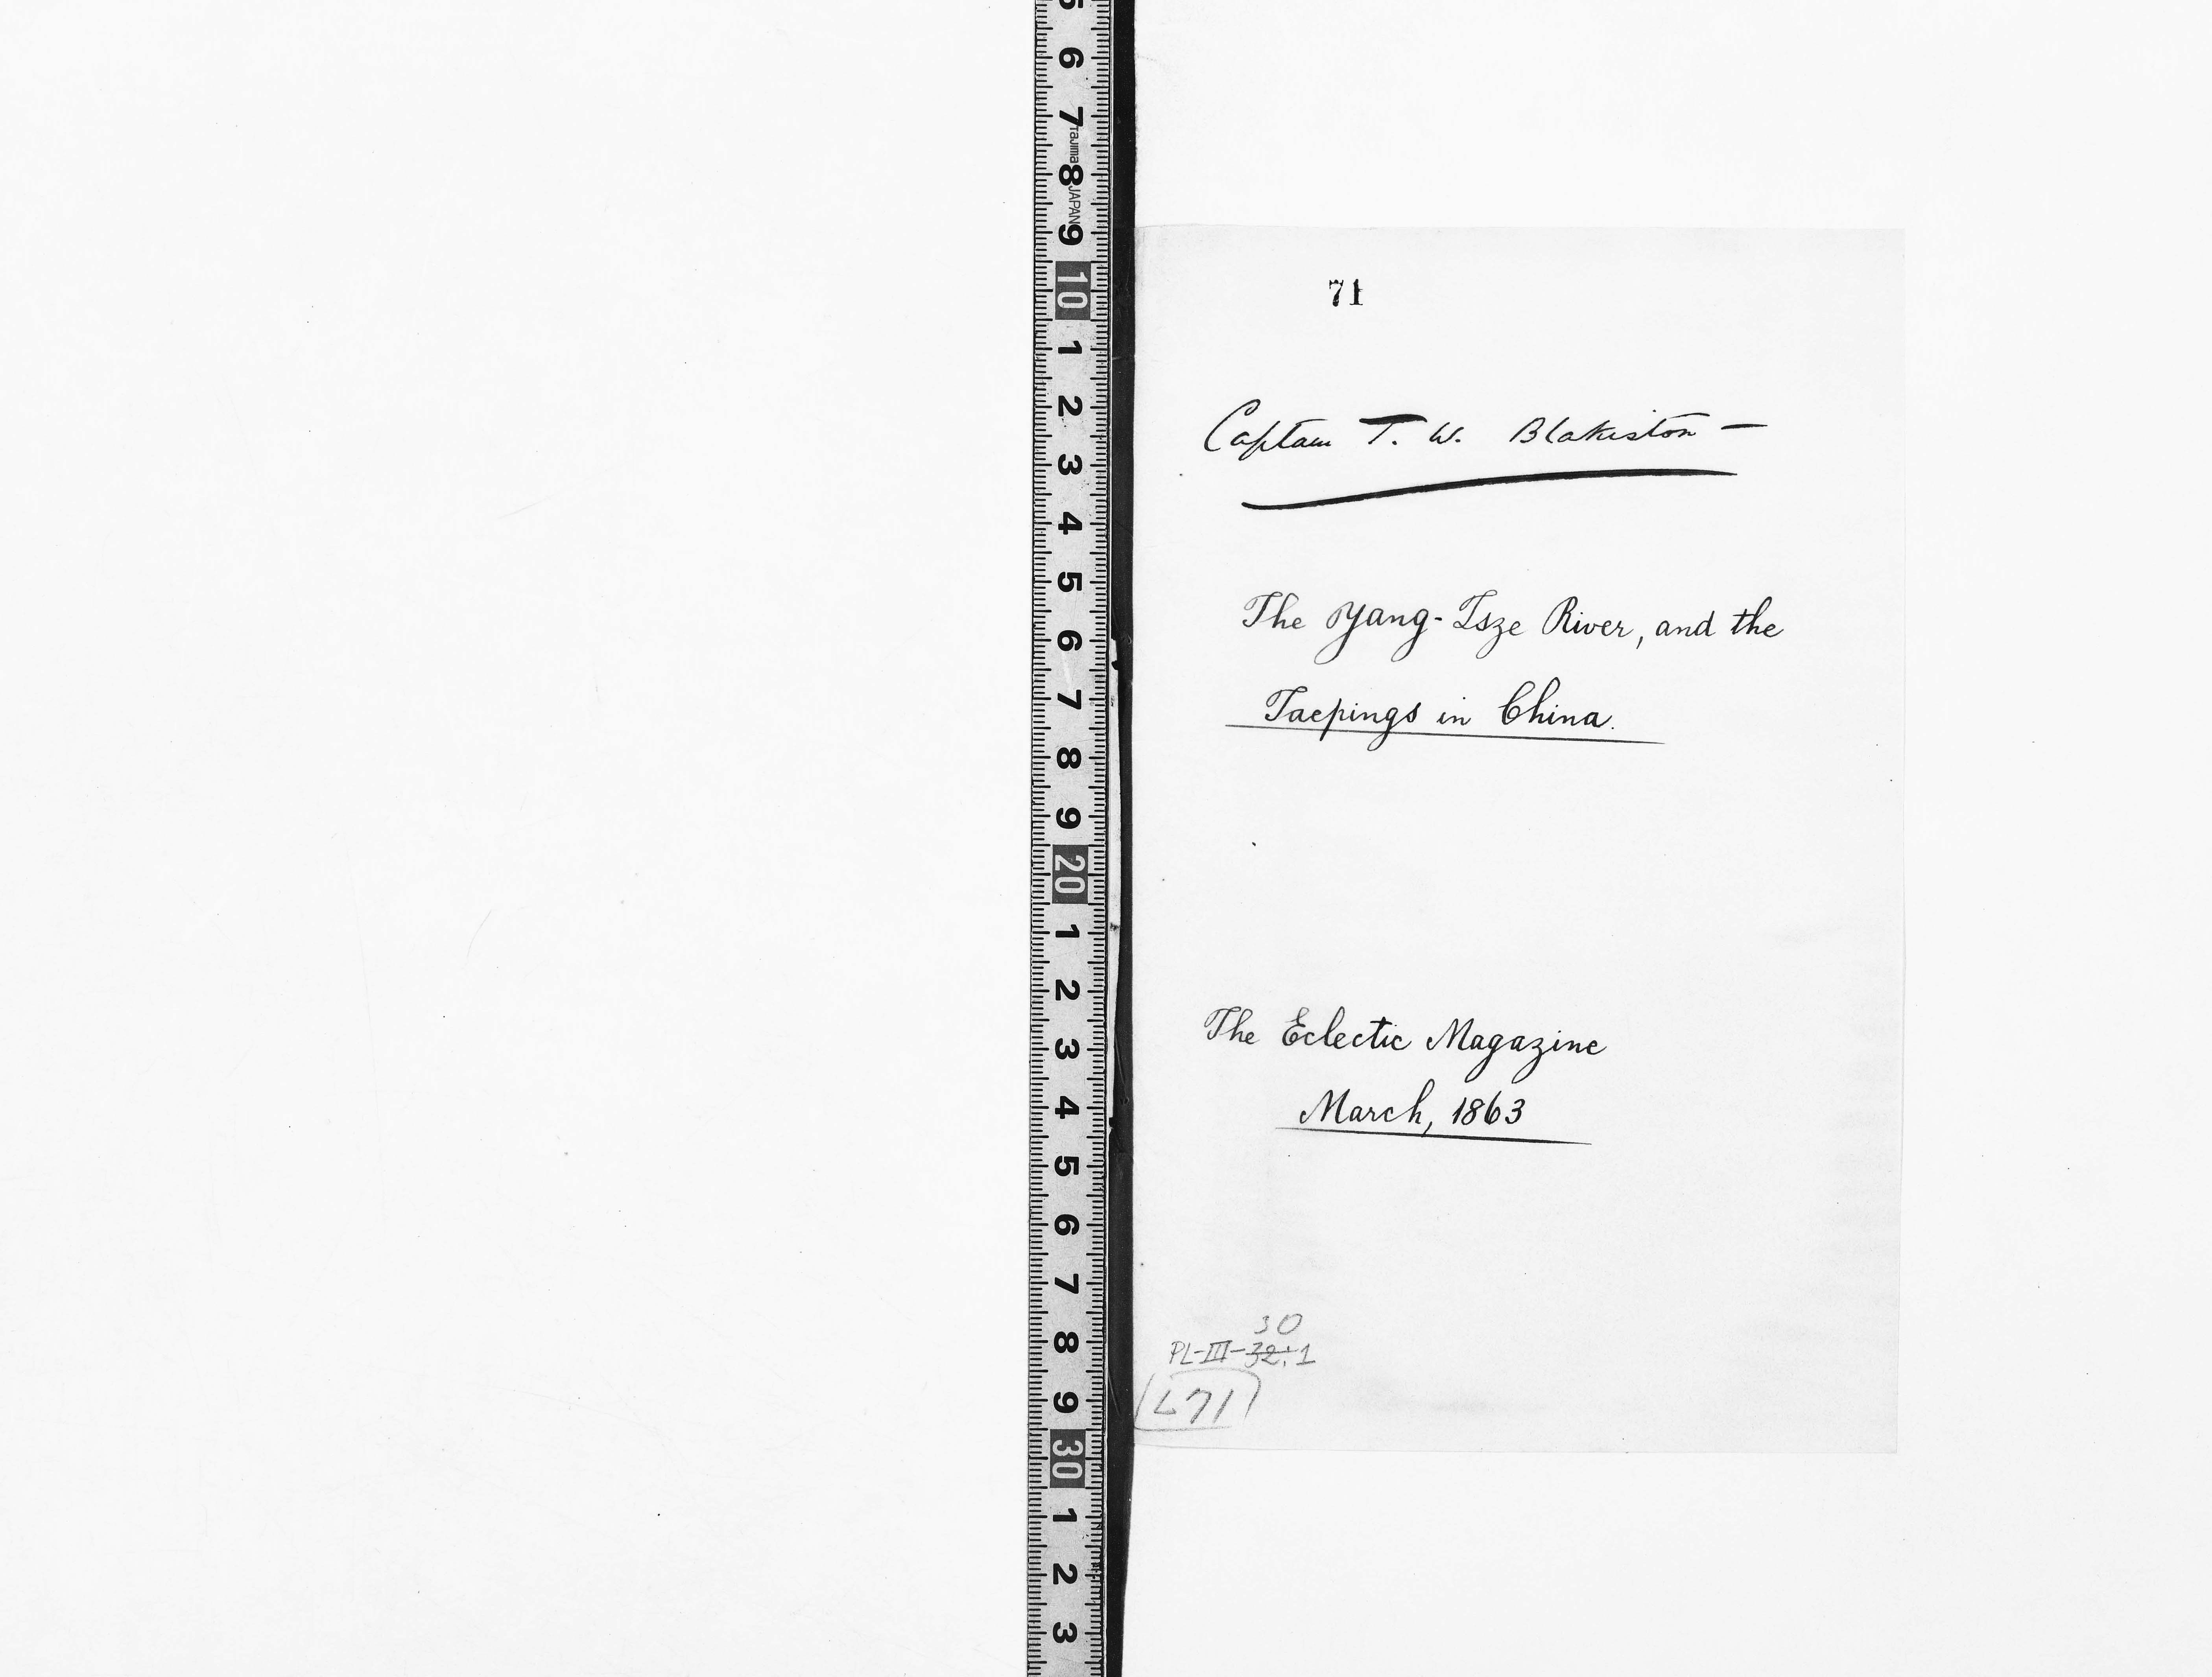 5
6
7
Tajima
8
JAPAN
9
10
1
2
3
4
5
6
7
8
9
20
1
2
3
4
5
6
7
8
9
30
1
2
3
71
Captain T. W. Blakiston —
The Yang-Tsze River, and the
Taepings in China.
The Eclectic Magazine
March, 1863
30
PL-III-32:1
L71